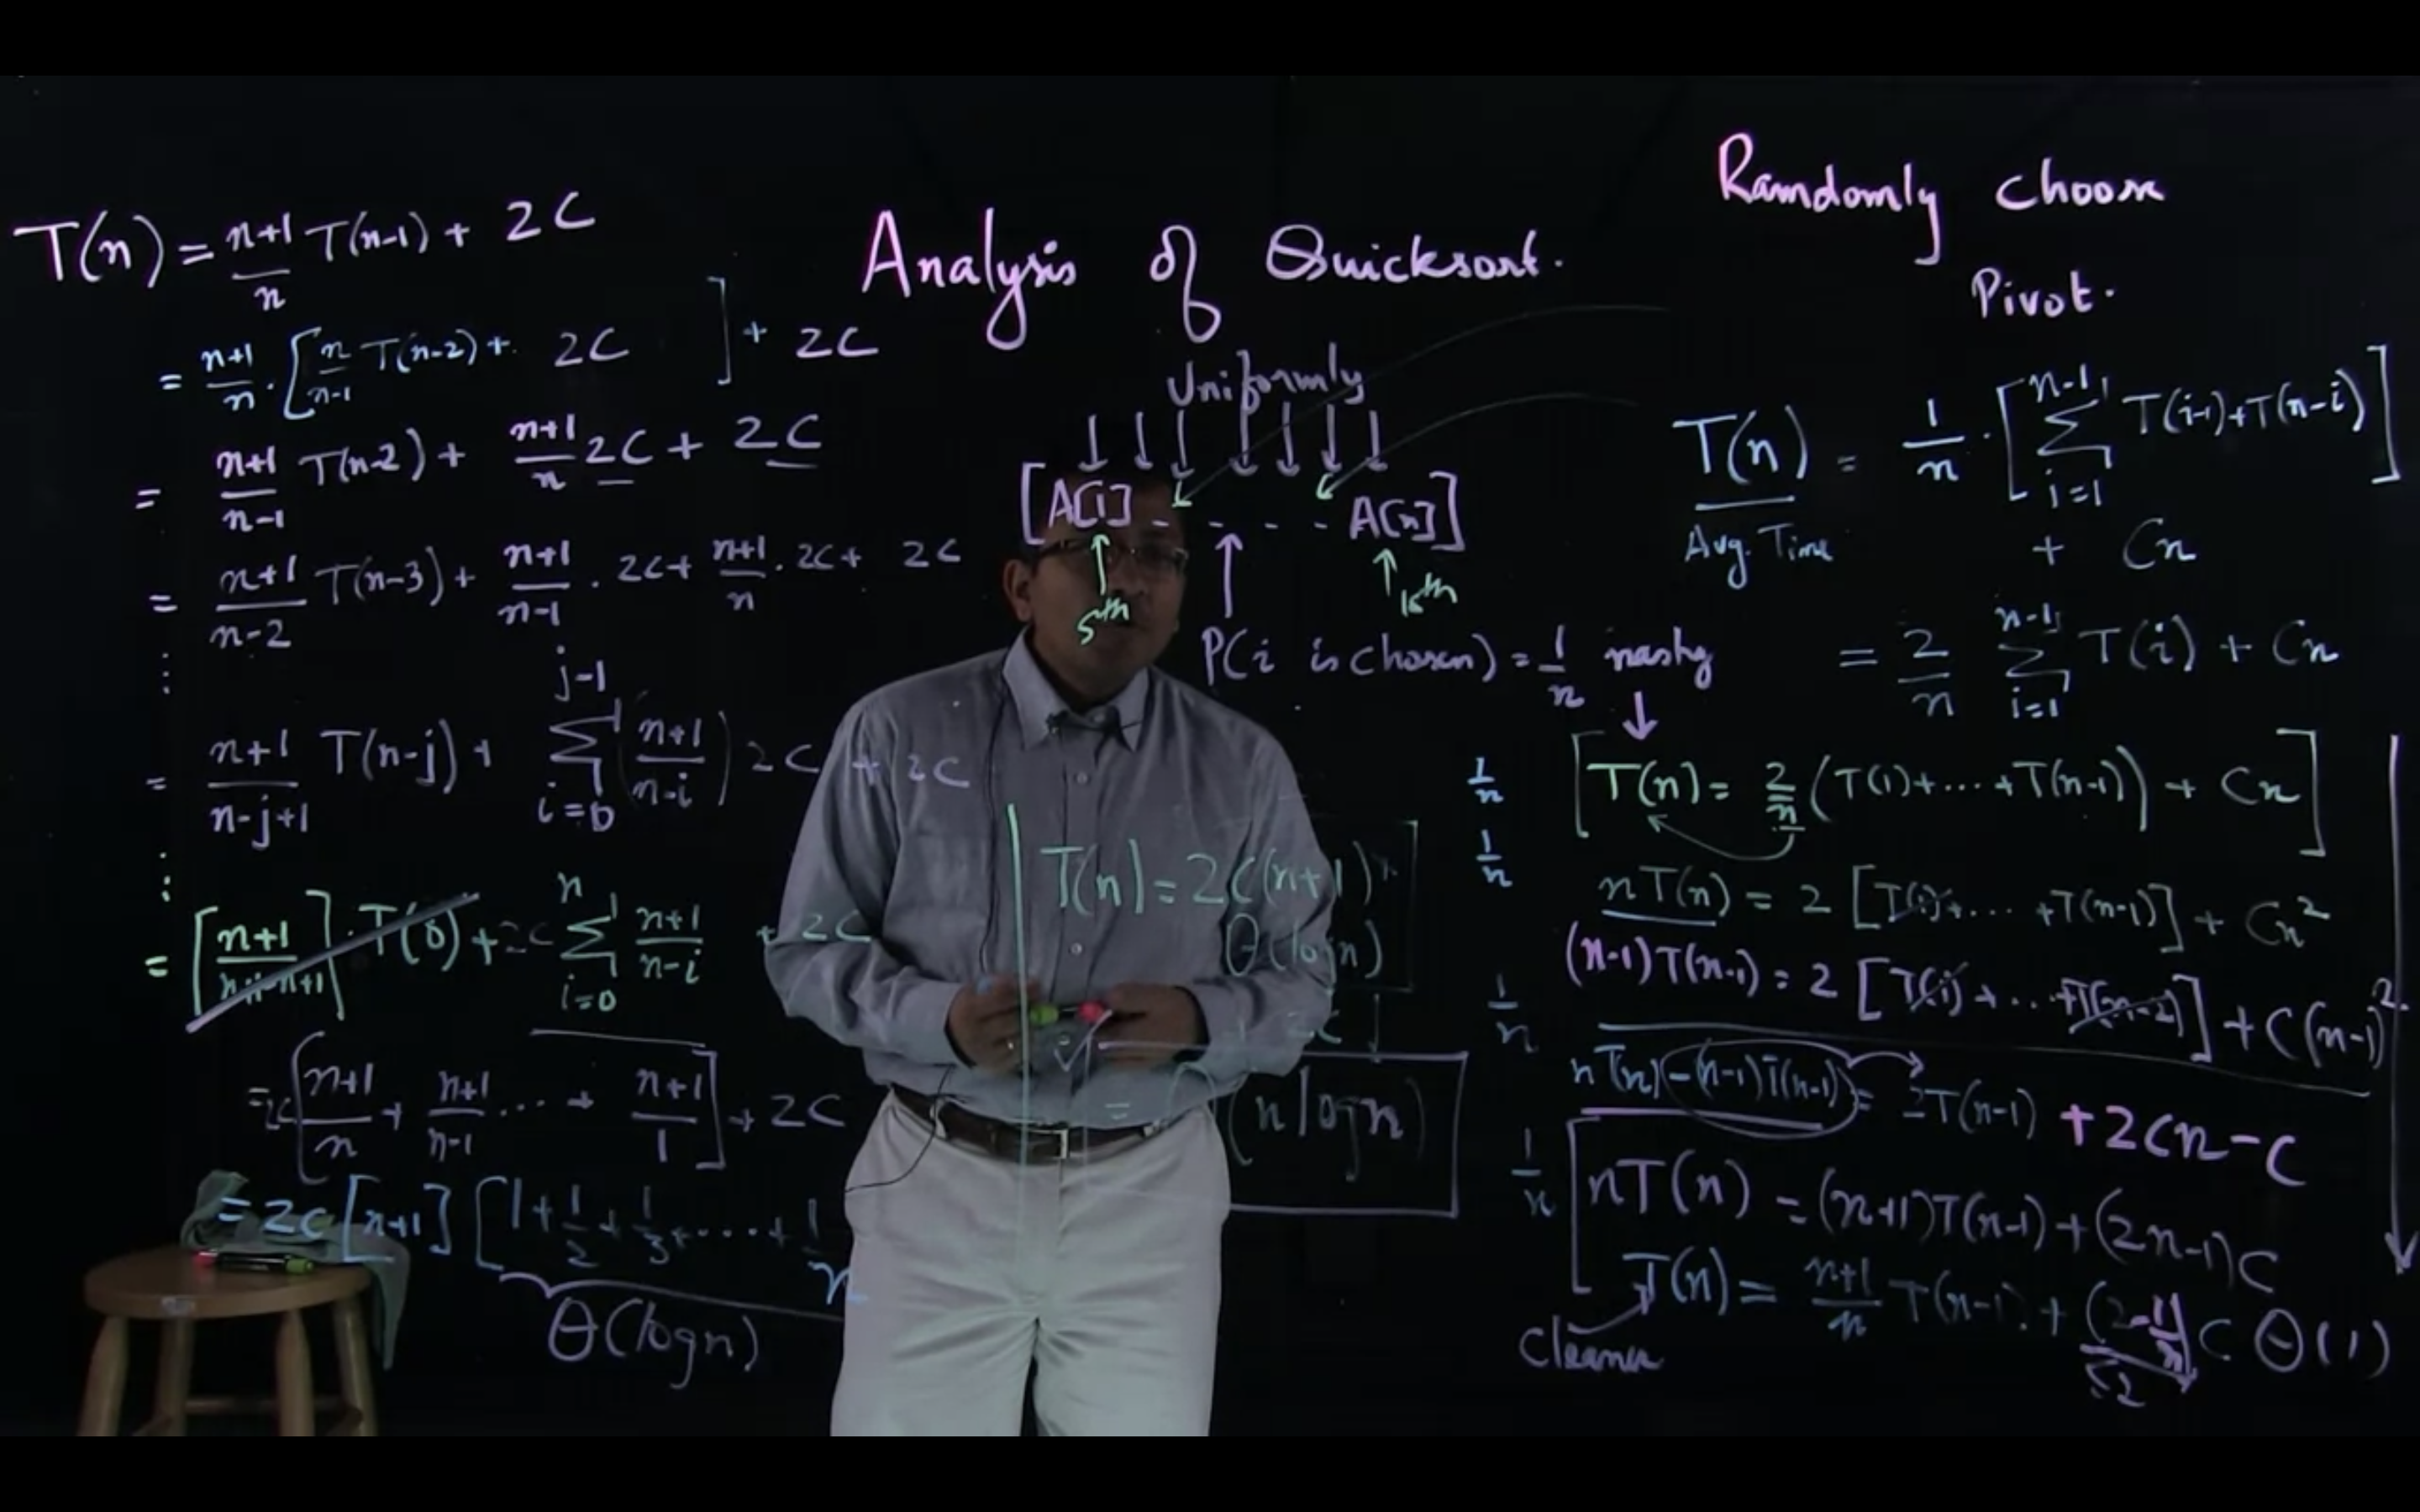 Analysis of Quicksort.
Randomly choose
Pivot.
T(n) = n+1/n T(n-1) + 2C
= n+1/n · [n/n-1 T(n-2) + 2C] + 2C
= n+1/n-1 T(n-2) + n+1/n 2C + 2C
= n+1/n-2 T(n-3) + n+1/n-1 · 2C + n+1/n · 2C + 2C
⋮
= n+1/n-j+1 T(n-j) + Σ_{i=0}^{j-1} (n+1/n-i) 2C + 2C
⋮
= [n+1/n-n+1] · T(0) + 2C Σ_{i=0}^{n} n+1/n-i + 2C
= 2C [n+1/n + n+1/n-1 ... + n+1/1] + 2C
= 2C [n+1] [1 + 1/2 + 1/3 + .... + 1/n
θ(log n)
Uniformly
[A[1] - - - - - A[n]]
5th
15th
P(i is chosen) = 1/n
T(n) = 2C(n+1) *
θ(log n)
+ 2C
= θ(n log n)
T(n) = 1/n · [Σ_{i=1}^{n-1} T(i-1) + T(n-i)]
Avg. Time
+ Cn
= 2/n Σ_{i=1}^{n-1} T(i) + Cn
nasty
1/n
[T(n) = 2/n (T(1) + ... + T(n-1)) + Cn]
1/n
nT(n) = 2 [T(1) + ... + T(n-1)] + Cn²
(n-1)T(n-1) = 2 [T(1) + ... + T(n-2)] + C(n-1)²
1/n
nT(n) - (n-1)T(n-1) = 2T(n-1) + 2Cn - C
1/n
nT(n) = (n+1)T(n-1) + (2n-1)C
T(n) = n+1/n T(n-1) + (2-1/n) C θ(1)
Cleaner
≤2